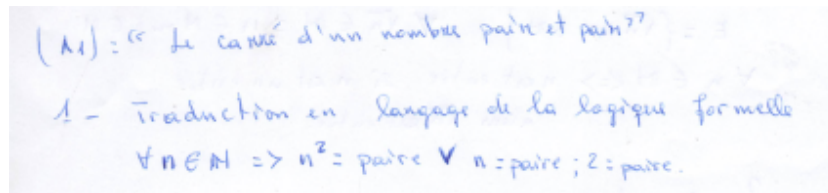 (A1) : "Le carré d'un nombre paire et pair"
1 - Traduction en langage de la logique formelle
∀ n ∈ N => n² = paire ∨ n = paire ; 2 = paire.